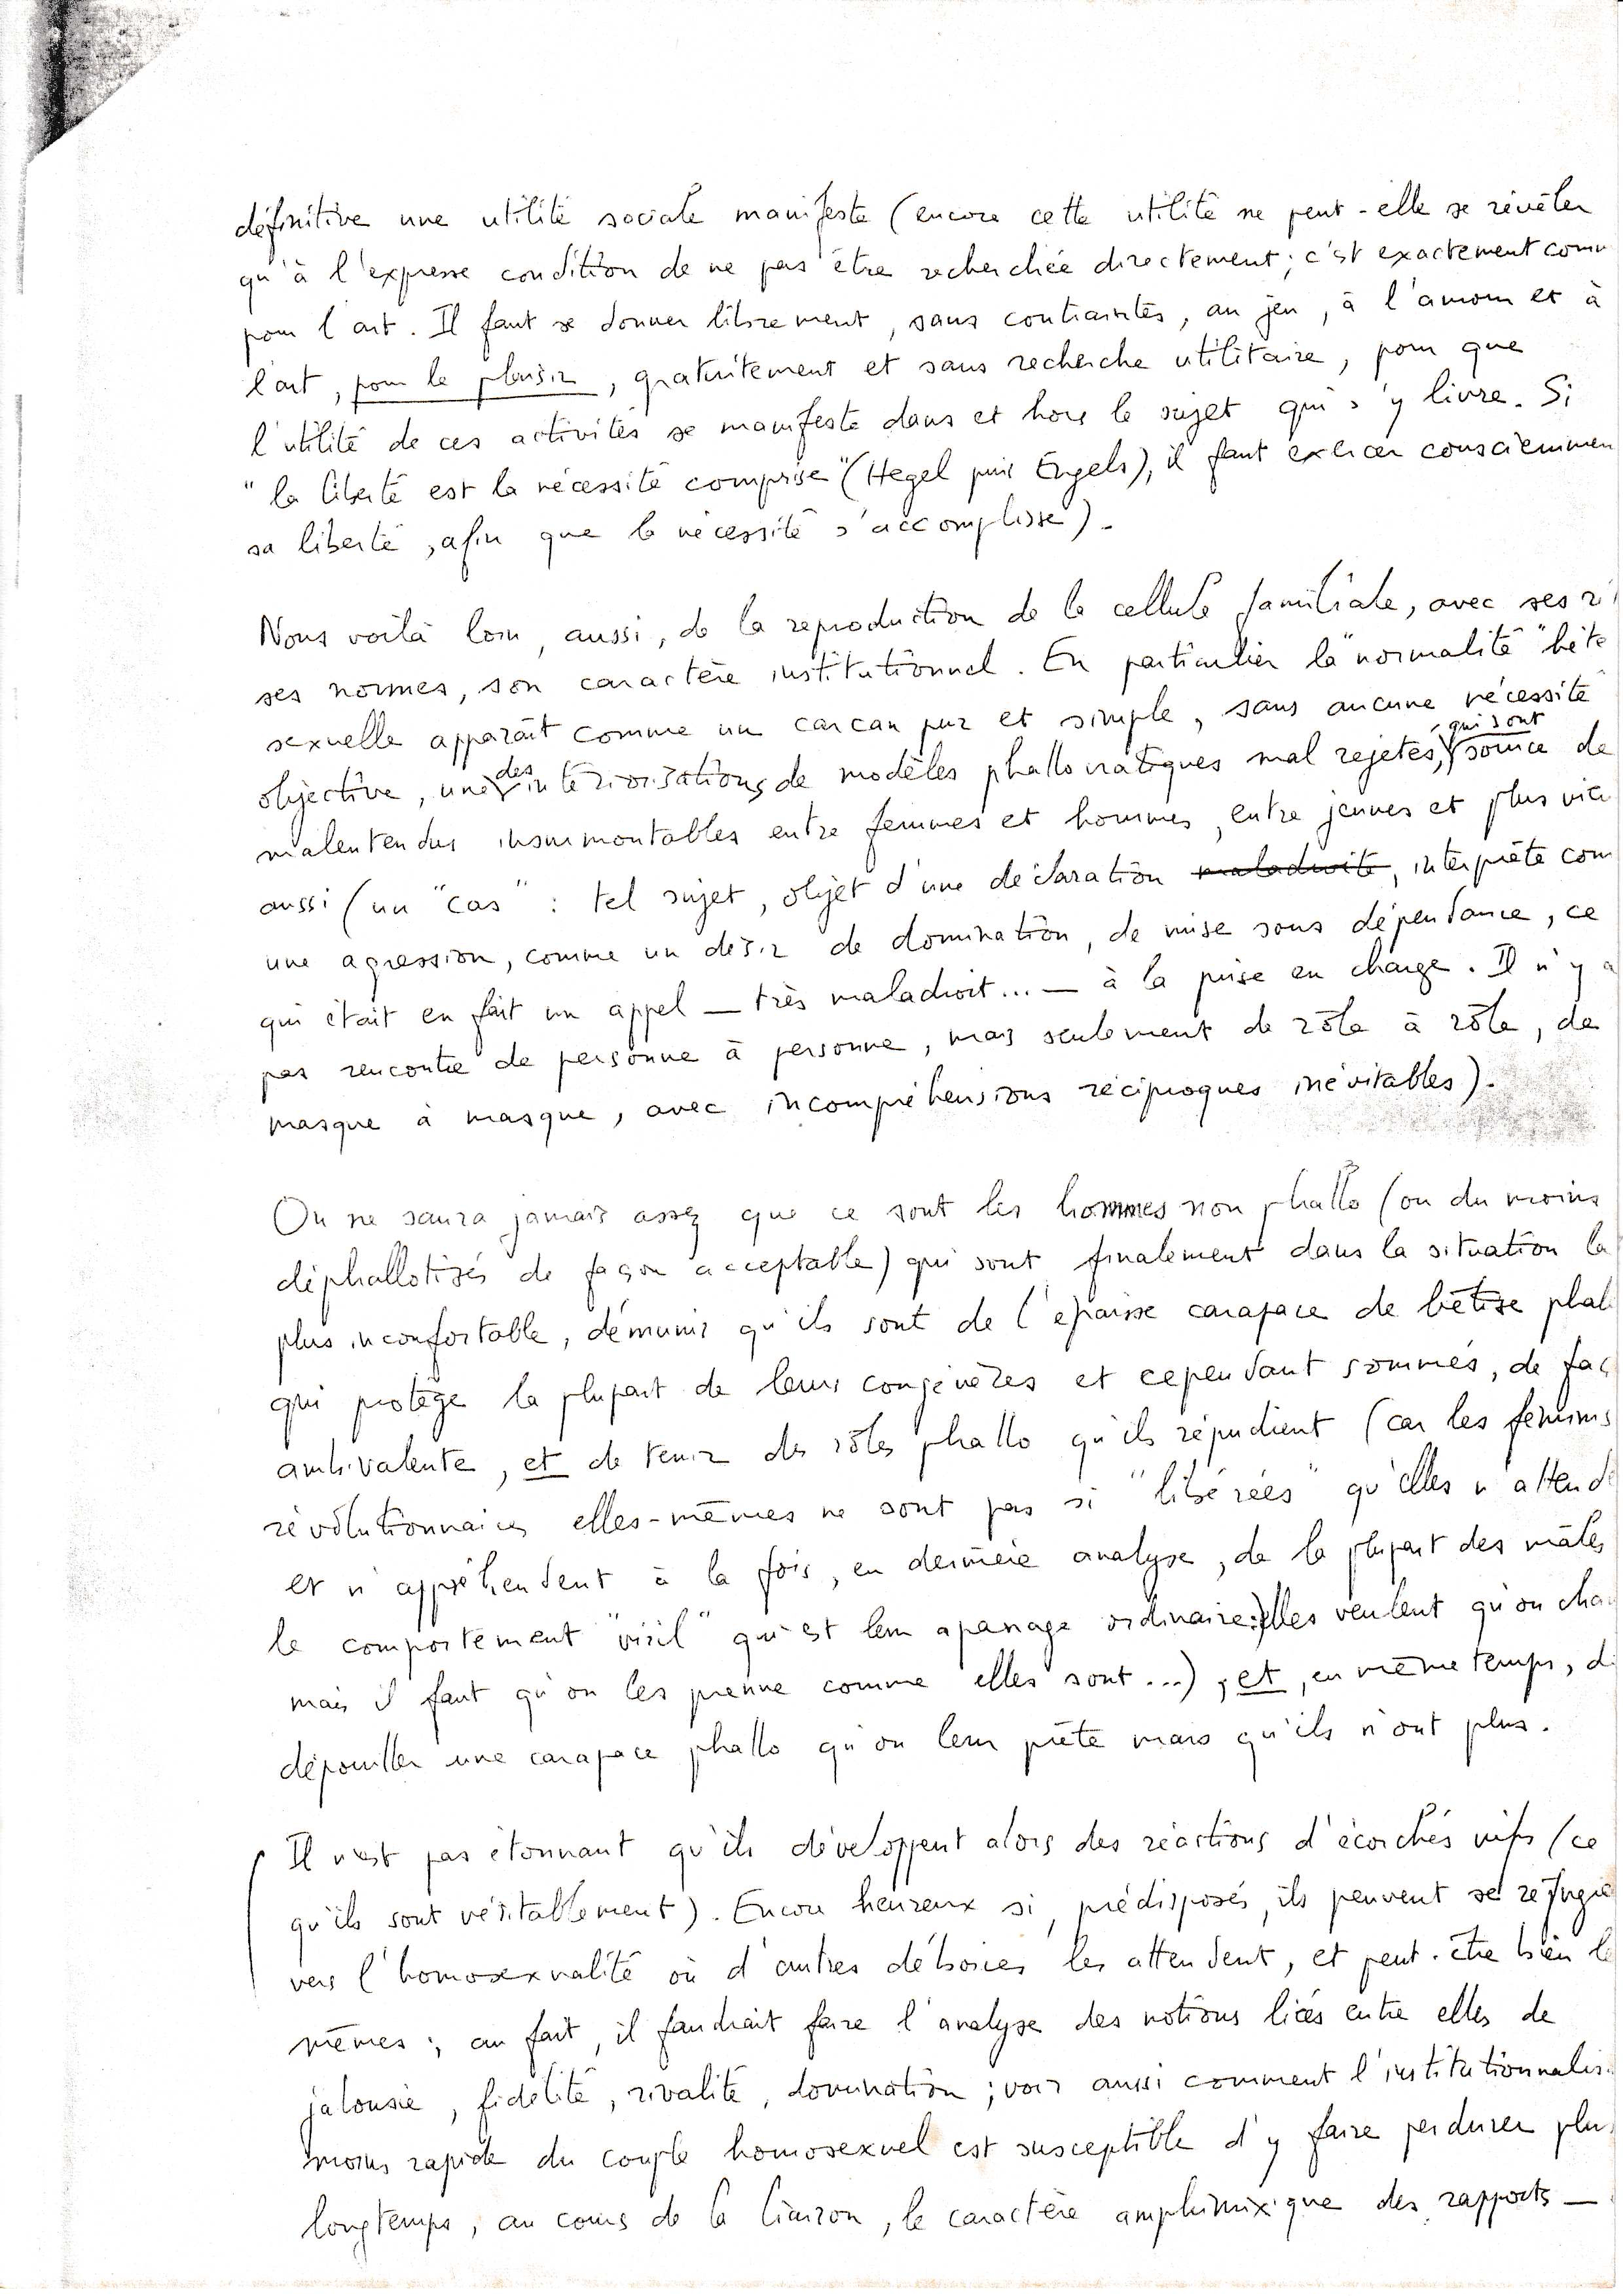 définitive une utilité sociale manifeste (encore cette utilité ne peut-elle se révéler
qu'à l'expresse condition de ne pas être recherchée directement ; c'est exactement comm
pour l'art. Il faut se donner librement, sans contraintes, au jeu, à l'amour et à
l'art, pour le plaisir, gratuitement et sans recherche utilitaire, pour que
l'utilité de ces activités se manifeste dans et hors le sujet qui s'y livre. Si
"la liberté est la nécessité comprise" (Hegel puis Engels), il faut exercer consciemmen
sa liberté, afin que la nécessité s'accomplisse).
Nous voilà loin, aussi, de la reproduction de la cellule familiale, avec ses ri
ses normes, son caractère institutionnel. En particulier la "normalité" héte
sexuelle apparaît comme un carcan pur et simple, sans aucune nécessité
objective, une des intériorisations de modèles phallocratiques mal rejetés, qui sont source de
malentendus insurmontables entre femmes et hommes, entre jeunes et plus vieu
aussi (un "cas" : tel sujet, objet d'une déclaration maladroite, interprète com
une agression, comme un désir de domination, de mise sous dépendance, ce
qui était en fait un appel — très maladroit... — à la prise en charge. Il n'y a
pas rencontre de personne à personne, mais seulement de rôle à rôle, de
masque à masque, avec incompréhensions réciproques inévitables).
On ne saura jamais assez que ce sont les hommes non phallo (ou du moins
déphallotisés de façon acceptable) qui sont finalement dans la situation la
plus inconfortable, démunis qu'ils sont de l'épaisse carapace de bêtise phall
qui protège la plupart de leurs congénères et cependant sommés, de faç
ambivalente, et de tenir des rôles phallo qu'ils répudient (car les féminis
révolutionnaires elles-mêmes ne sont pas si "libérées" qu'elles n'attende
et n'appréhendent à la fois, en dernière analyse, de la plupart des mâles
le comportement "viril" qu'est leur apanage ordinaire : elles veulent qu'on chan
mais il faut qu'on les prenne comme elles sont...), et, en même temps, d
dépouiller une carapace phallo qu'on leur prête mais qu'ils n'ont plus.
Il n'est pas étonnant qu'ils développent alors des réactions d'écorchés vifs (ce
qu'ils sont véritablement). Encore heureux si, prédisposés, ils peuvent se réfugie
vers l'homosexualité où d'autres déboires les attendent, et peut-être bien le
mêmes ; au fait, il faudrait faire l'analyse des notions liées entre elles de
jalousie, fidélité, rivalité, domination ; voir aussi comment l'institutionnalis
moins rapide du couple homosexuel est susceptible d'y faire perdurer plus
longtemps, au cours de la liaison, le caractère amphimixique des rapports —